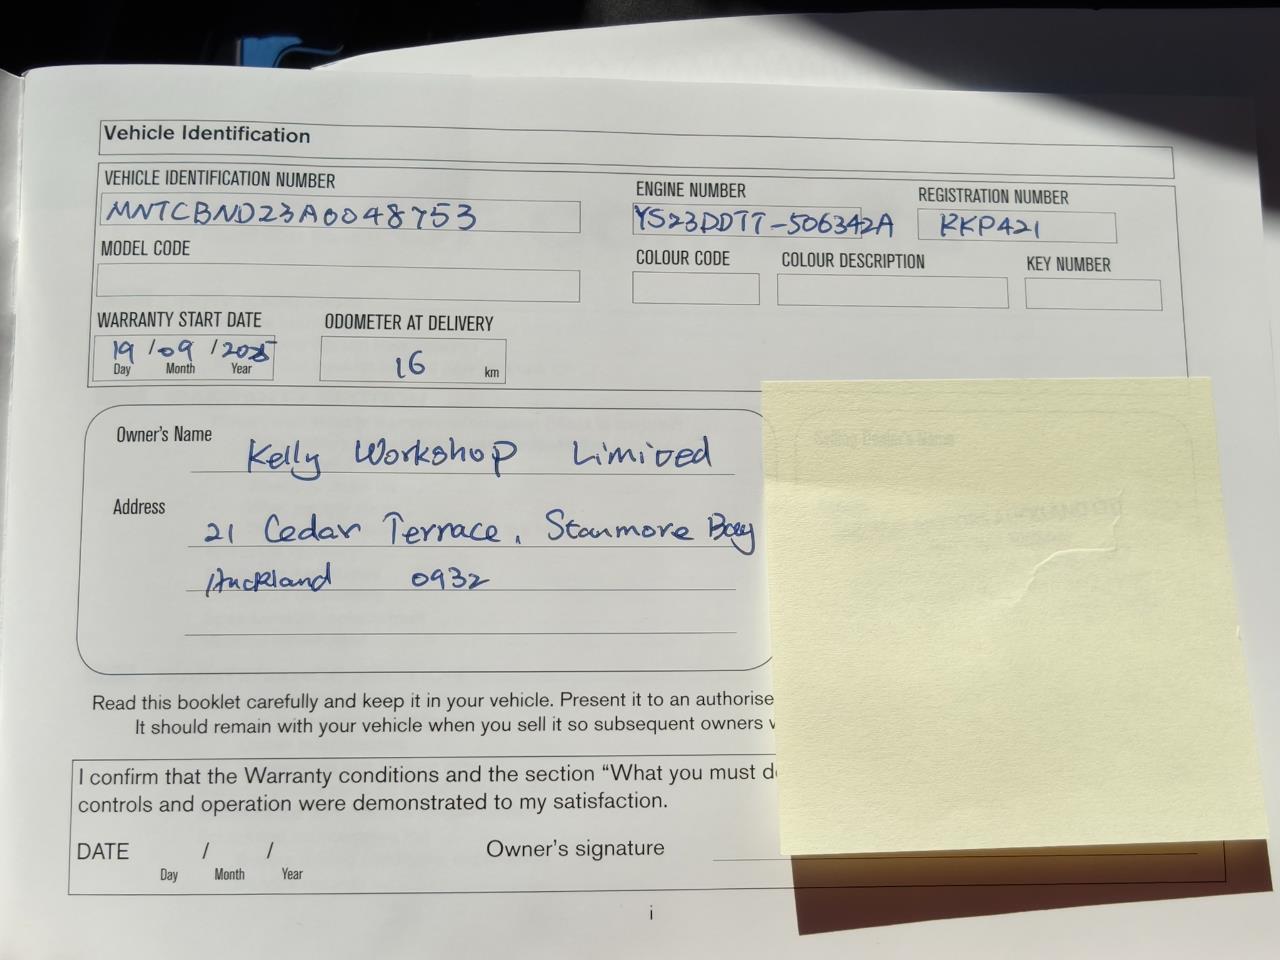 Vehicle Identification
VEHICLE IDENTIFICATION NUMBER
MNTCBND23A0048753
ENGINE NUMBER
YS23DDTT-506342A
REGISTRATION NUMBER
RKP421
MODEL CODE
COLOUR CODE
COLOUR DESCRIPTION
KEY NUMBER
WARRANTY START DATE
19 / 09 / 2025
Day Month Year
ODOMETER AT DELIVERY
16 km
Owner's Name Kelly Workshop Limited
Address
21 Cedar Terrace, Stanmore Bay
Auckland 0932
Read this booklet carefully and keep it in your vehicle. Present it to an authorise
It should remain with your vehicle when you sell it so subsequent owners
I confirm that the Warranty conditions and the section “What you must d
controls and operation were demonstrated to my satisfaction.
DATE / / Owner's signature
Day Month Year
i